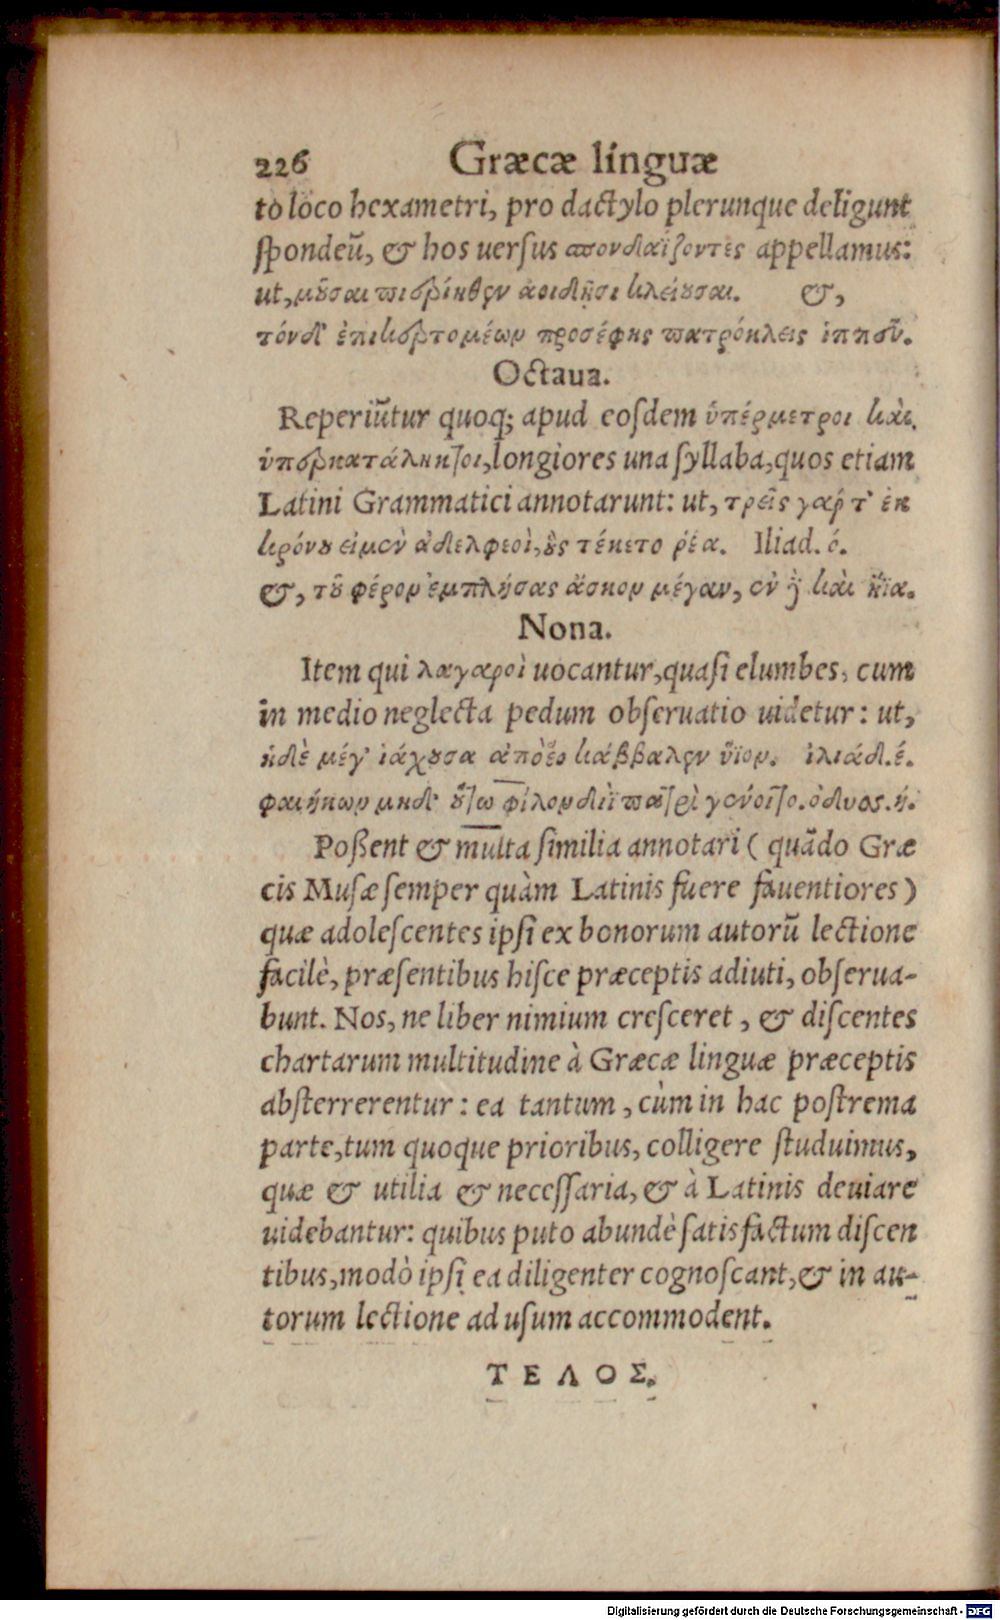 226 Græcæ linguæ
to loco hexametri, pro dactylo plerunque deligunt
ſpondeũ, & hos uerſus σπονδιαΐζοντες appellamus:
ut, μοῦσαι πιερίηθεν ἀοιδῇσι κλείουσαι. &,
τόνδ᾽ ἐπικερτομέων προσέφης πατρόκλεις ἱππεῦ.
Octaua.
Reperiũtur quoq; apud eoſdem ὑπέρμετροι καὶ
ὑπερκατάληκτοι, longiores una ſyllaba, quos etiam
Latini Grammatici annotarunt: ut, τρεῖς γαρ τ᾽ ἐκ
κρόνου εἰμὲν ἀδελφεοὶ, οὓς τέκετο ῥέα. Iliad. ό.
&, τοῦ φέρον ἐμπλήσας ἄσκον μέγαν, ἐν δὲ καὶ ἤϊα.
Nona.
Item qui λαγαροὶ uocantur, quaſi elumbes, cum
in medio neglecta pedum obſeruatio uidetur: ut,
ἡδὲ μέγ᾽ ἰάχουσα ἀπὸ ἕο κάββαλεν ὕϊον. ἰλιάδ. έ.
φαιήκων μηδ᾽ οὕτω φίλον διῒ πατρὶ γένοιτο. ὀδυσ. ή.
Poßent & multa ſimilia annotari ( quãdo Græ
cis Muſæ ſemper quàm Latinis fuere fauentiores )
quæ adoleſcentes ipſi ex bonorum autorũ lectione
facilè, præſentibus hiſce præceptis adiuti, obſerua-
bunt. Nos, ne liber nimium creſceret, & diſcentes
chartarum multitudine à Græcæ linguæ præceptis
abſterrerentur: ea tantum, cùm in hac poſtrema
parte, tum quoque prioribus, colligere ſtuduimus,
quæ & utilia & neceſſaria, & à Latinis deuiare
uidebantur: quibus puto abundè ſatis factum diſcen
tibus, modò ipſi ea diligenter cognoſcant, & in au-
torum lectione ad uſum accommodent.
ΤΕΛΟΣ.
Digitalisierung gefördert durch die Deutsche Forschungsgemeinschaft - DFG